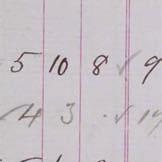 5 10 8 ✓ 9
4 3 . ✓